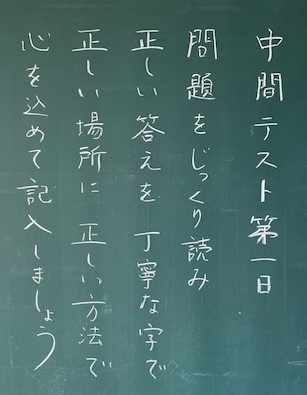 中間テスト第一日
問題をじっくり読み
正しい答えを 丁寧な字で
正しい場所に 正しい方法で
心を込めて記入しましょう